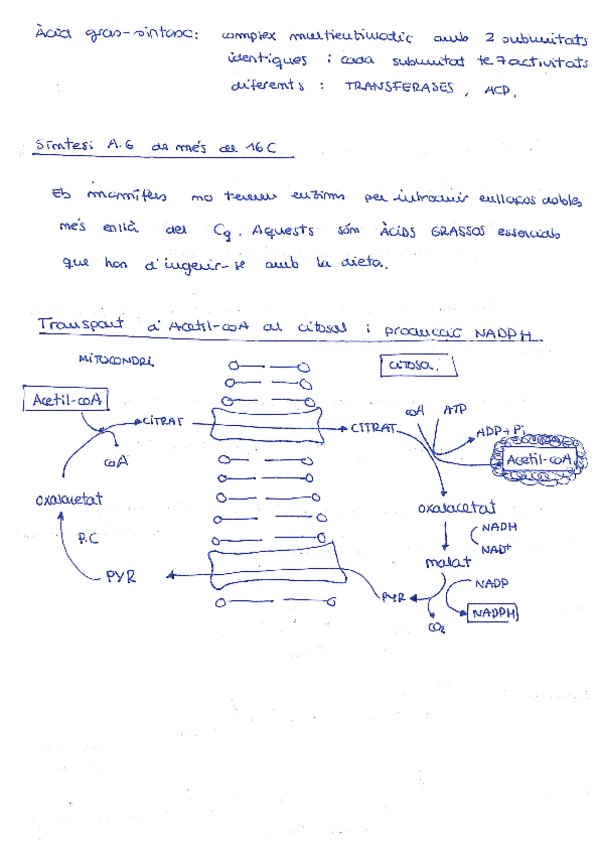 Àcid gras-sintasa: complex multienzimàtic amb 2 subunitats
idèntiques i cada subunitat té 7 activitats
diferents: TRANSFERASES, ACP.
Síntesi A.G de més de 16 C
Els mamífers no tenen enzims per introduir enllaços dobles
més enllà del C9. Aquests són ÀCIDS GRASSOS essencials
que han d'ingerir-se amb la dieta.
Transport d'Acetil-coA al citosol i producció NADPH
MITOCONDRI
CITOSOL
Acetil-coA
CITRAT
CITRAT
coA
ATP
ADP + Pi
Acetil-coA
coA
oxalacetat
oxalacetat
NADH
NAD+
P.C
malat
PYR
PYR
NADP
NADPH
CO2